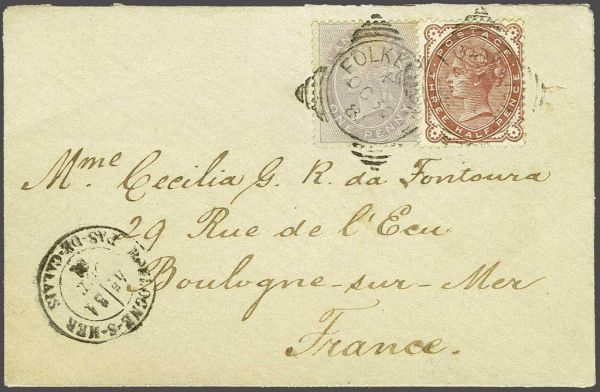 POSTAGE
ONE PENNY
THREE HALF PENCE
FOLKES
OC 3
8
Mme Cecilia G. R. da Fontoura
29 Rue de l'Ecu
Boulogne-sur-Mer
France.
BOULOGNE-S-MER
PAS-DE-CALAIS